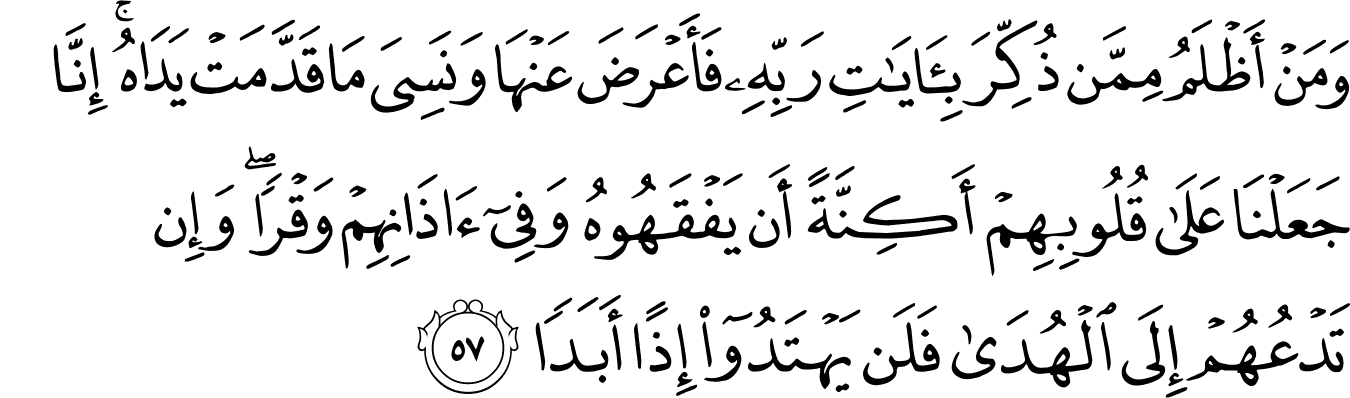 وَمَنْ أَظْلَمُ مِمَّن ذُكِّرَ بِـَٔايَـٰتِ رَبِّهِۦ فَأَعْرَضَ عَنْهَا وَنَسِىَ مَا قَدَّمَتْ يَدَاهُ ۚ إِنَّا
جَعَلْنَا عَلَىٰ قُلُوبِهِمْ أَكِنَّةً أَن يَفْقَهُوهُ وَفِىٓ ءَاذَانِهِمْ وَقْرًا ۖ وَإِن
تَدْعُهُمْ إِلَى ٱلْهُدَىٰ فَلَن يَهْتَدُوٓا۟ إِذًا أَبَدًا ٥٧